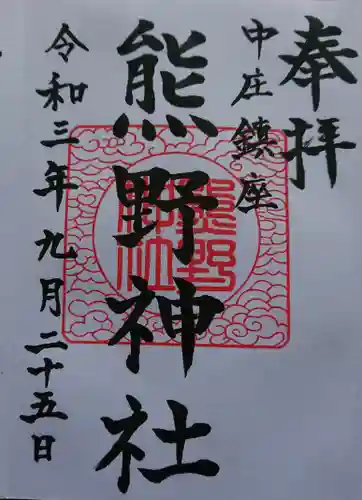 奉拝
中庄鎮座
熊野神社
熊野
神社
令和三年九月二十五日